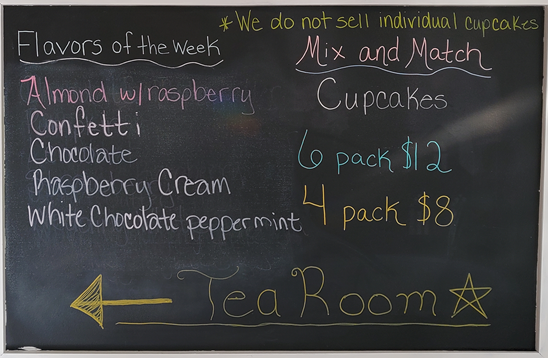 *We do not sell individual cupcakes
Flavors of the week
Almond w/raspberry
Confetti
Chocolate
Raspberry Cream
White Chocolate peppermint
Mix and Match
Cupcakes
6 pack $12
4 pack $8
Tea Room